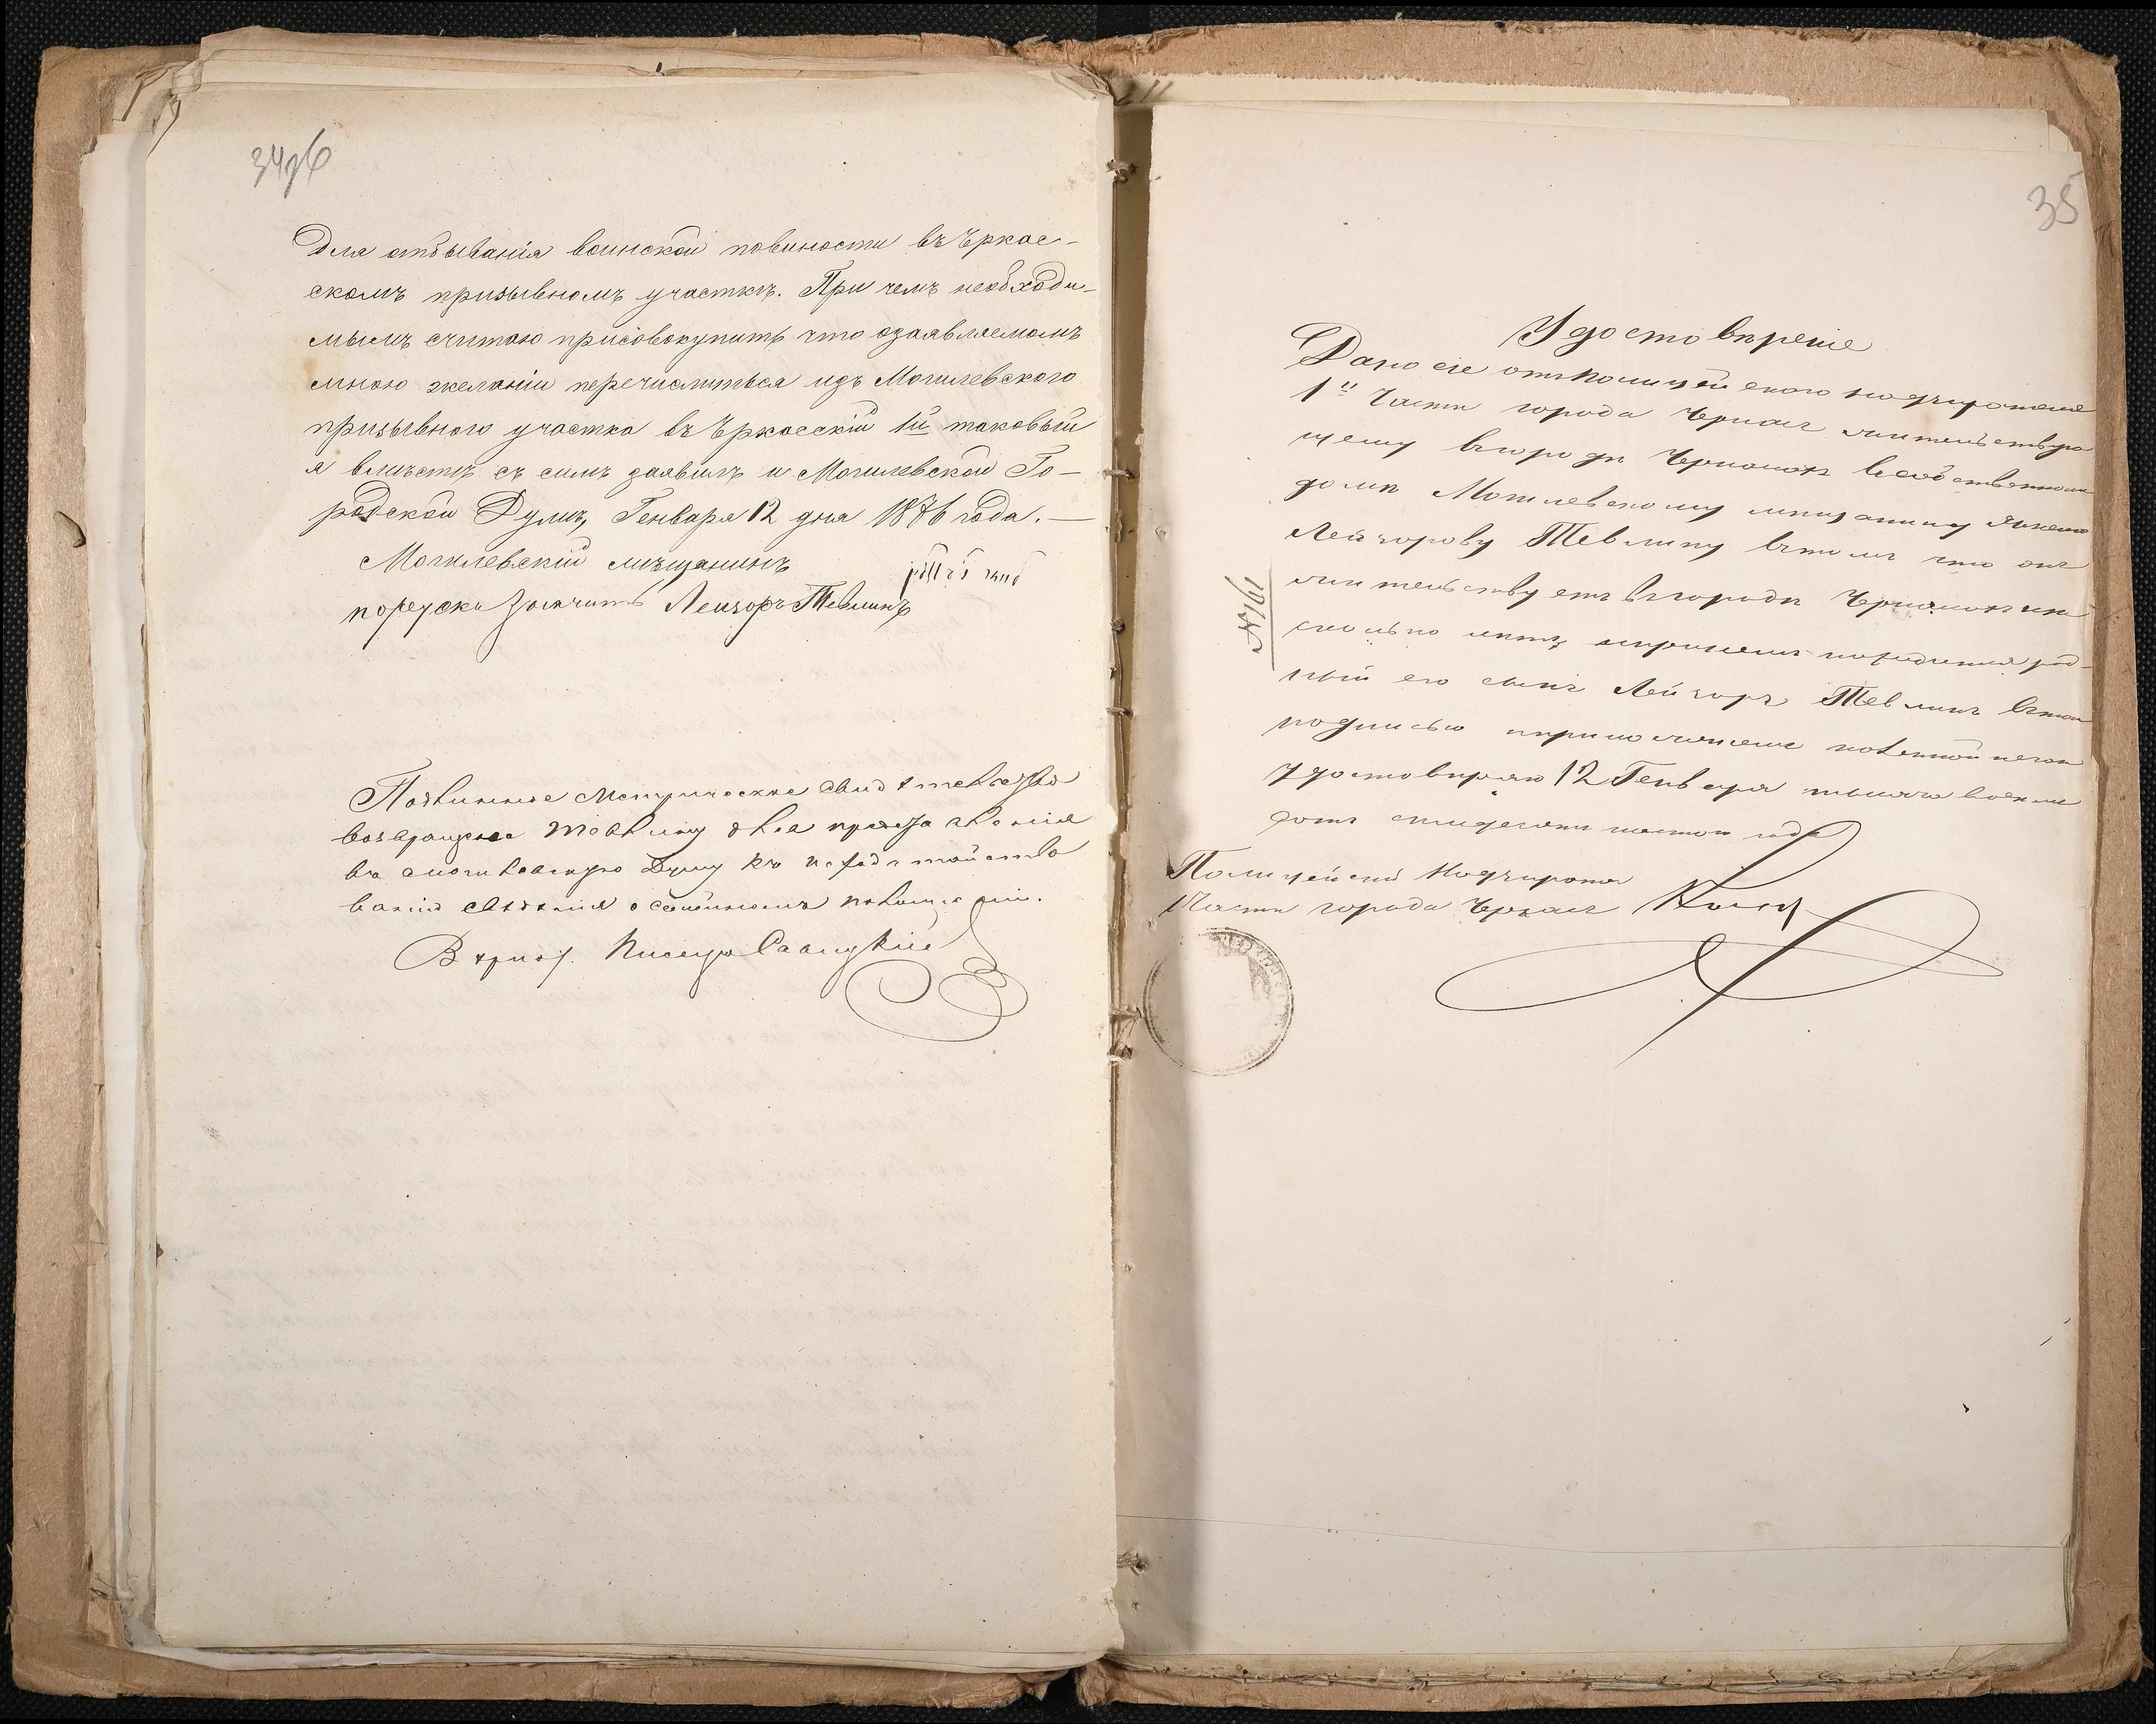 34об
Для отбыванія воинской повиности въ Черкас-
скомъ призывномъ участкѣ. При чемъ необходи-
мымъ считаю присовокупить что озаявляемомъ
мною желаніи перечислиться изъ Могилевского
призывного участка въ Черкасскій 1й таковый
я вмѣстѣ съ симъ заявилъ и Могилевской Го-
родской Думѣ, Генваря 12 дня 1876 года.—
Могилевскій мѣщанинъ
порускі значитъ Леизоръ Тевлинъ
Подлинное Метрическое свидѣтельство
возвращено Тевлину для представленія
въ Могилевскую Думу къ
свѣденія о семейномъ положеніи.
Писецъ Савицкій
35
Удостовѣреніе
Дано сіе отъ Полицейского надзирателя
1й Части города Черкасъ жительствую
щему въ городѣ Черкасахъ въ собственномъ
домѣ Могилевскому мѣщанину
Лейзорову Тевлину въ томъ что онъ
жительствуетъ въ городѣ Черкасахъ нѣ
сколько лѣтъ, род-
ный его сынъ Лейзоръ Тевлинъ въ томъ
подписью и приложеніемъ казенной печати
удостовѣряю 12 Генваря тысяча восем
сотъ семдесятъ шестого года
Полицейскій Надзиратель
1 Части города Черкасъ
№ 161